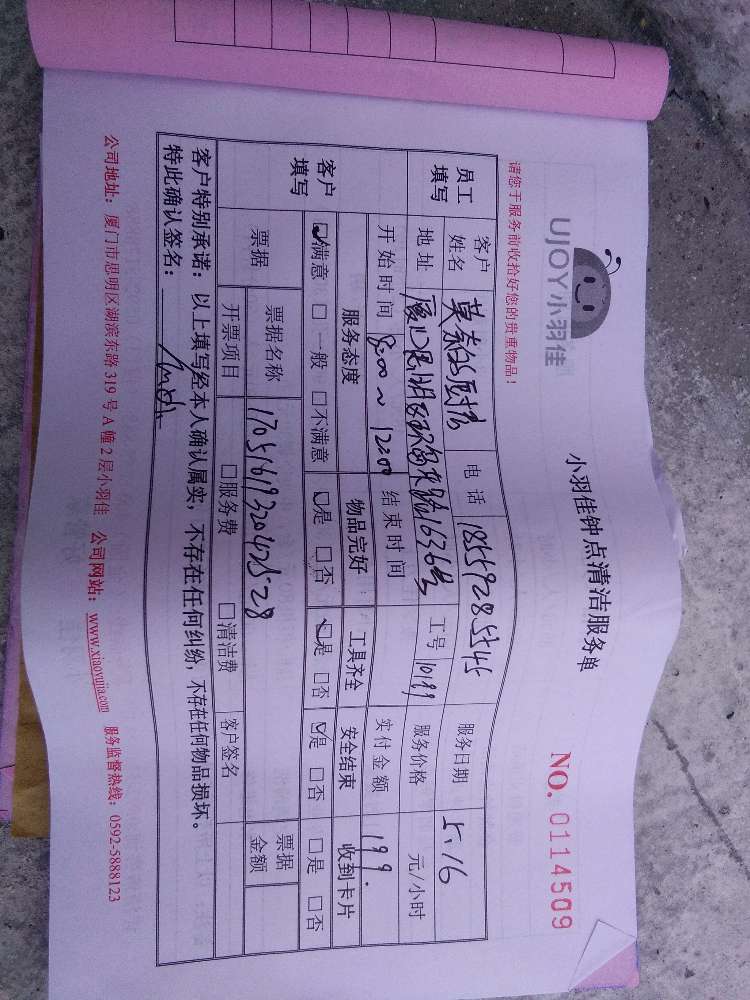 UJOY小羽佳
小羽佳钟点清洁服务单
NO. 0114509
请您于服务前收拾好您的贵重物品!
员工填写 客户姓名 电话 18559285545 服务日期 5.16
地址 工号 10199 服务价格 元/小时
开始时间 8:00~12:00 结束时间 实付金额 199.
客户填写 服务态度 物品完好 工具齐全 安全结束 收到卡片
☑满意 □一般 □不满意 ☑是 □否 ☑是 □否 ☑是 □否 □是 □否
票据 票据名称 1705161932042528 票据金额
开票项目 □服务费 □清洁费 客户签名
客户特别承诺:以上填写经本人确认属实,不存在任何纠纷,不存在任何物品损坏。
特此确认签名:
公司地址:厦门市思明区湖滨东路319号A幢2层小羽佳 公司网站:www.xiaoyujia.com 服务监督热线:0592-5888123